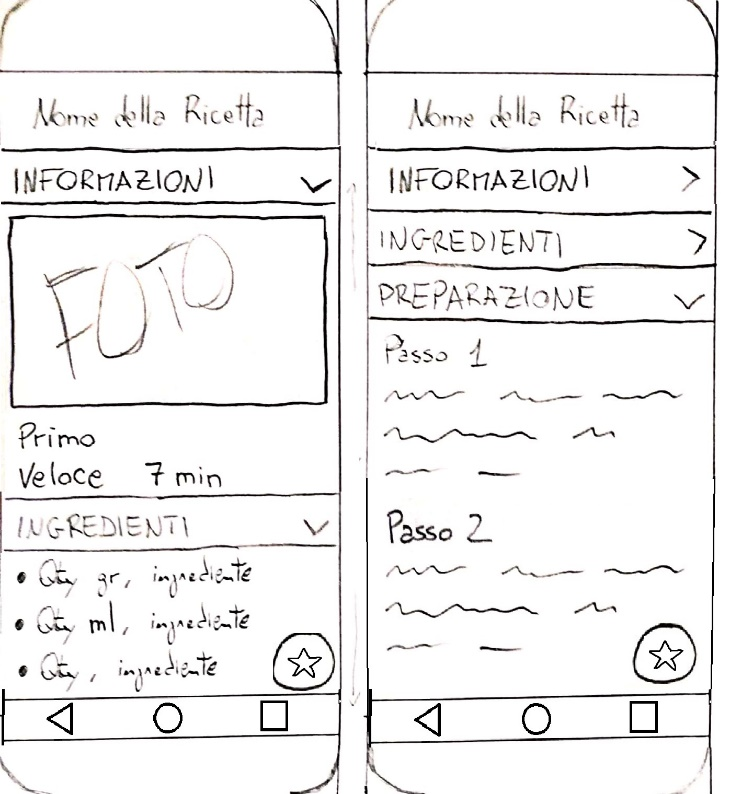 Nome della Ricetta
INFORMAZIONI
FOTO
Primo
Veloce 7 min
INGREDIENTI
• Qty gr, ingrediente
• Qty ml, ingrediente
• Qty, ingrediente
Nome della Ricetta
INFORMAZIONI
INGREDIENTI
PREPARAZIONE
Passo 1
Passo 2